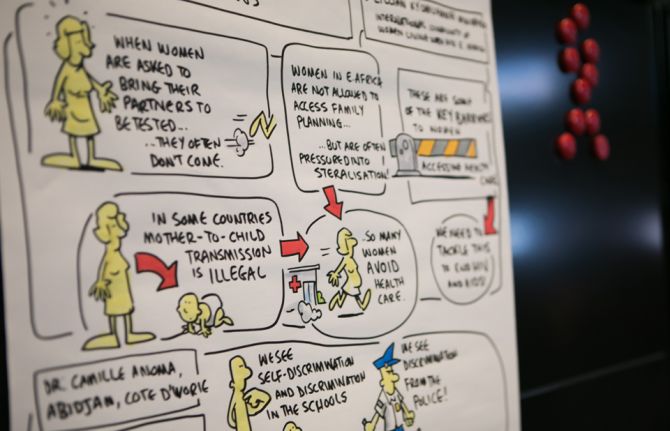 INTERNATIONAL COMMUNITY OF
WHEN WOMEN
ARE ASKED TO
BRING THEIR
PARTNERS TO
BE TESTED...
...THEY OFTEN
DON'T COME.
WOMEN IN E.AFRICA
ARE NOT ALLOWED TO
ACCESS FAMILY
PLANNING...
...BUT ARE OFTEN
PRESSURED INTO
STERALISATION!
THESE ARE SOME
OF THE KEY BARRIERS
TO WOMEN
ACCESSING HEALTH
CARE.
IN SOME COUNTRIES
MOTHER-TO-CHILD
TRANSMISSION
IS ILLEGAL
...SO MANY
WOMEN
AVOID
HEALTH
CARE.
WE NEED TO
TACKLE THIS
TO END HIV
AND AIDS!
DR. CAMILLE ANOMA,
ABIDJAN, COTE D'IVORIE
WE SEE
SELF-DISCRIMINATION
AND DISCRIMINATION
IN THE SCHOOLS
WE SEE
DISCRIMINATION
FROM THE
POLICE!